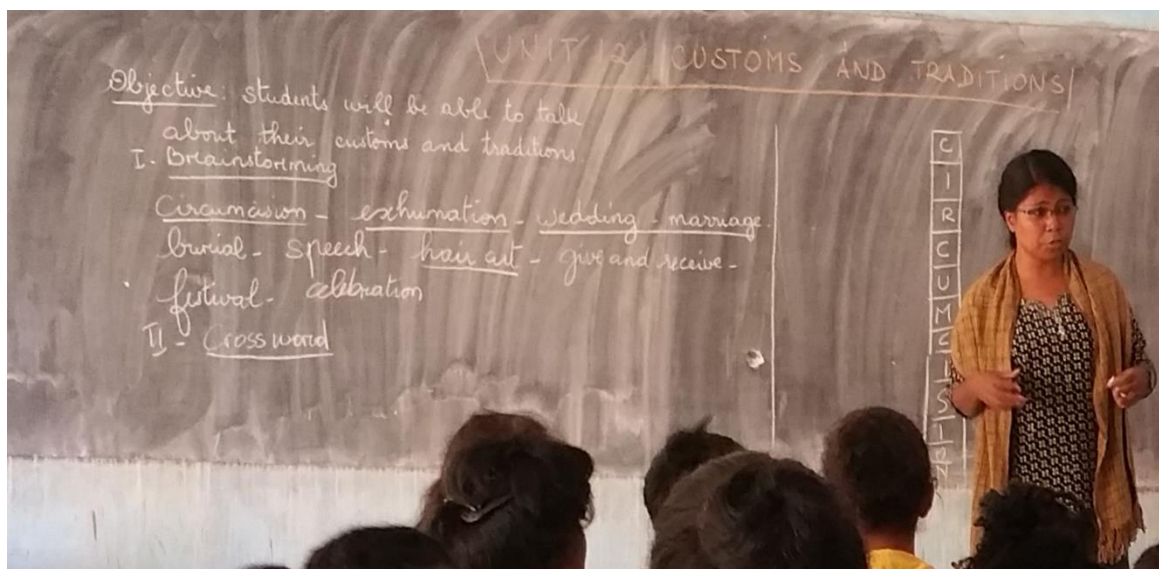 UNIT 12 CUSTOMS AND TRADITIONS
Objective: students will be able to talk
about their customs and traditions.
I. Brainstorming
Circumcision - exhumation - wedding - marriage.
burial - speech - hair cut - give and receive -
festival - celebration
II - Crossword
C
I
R
C
U
M
C
I
S
I
O
N